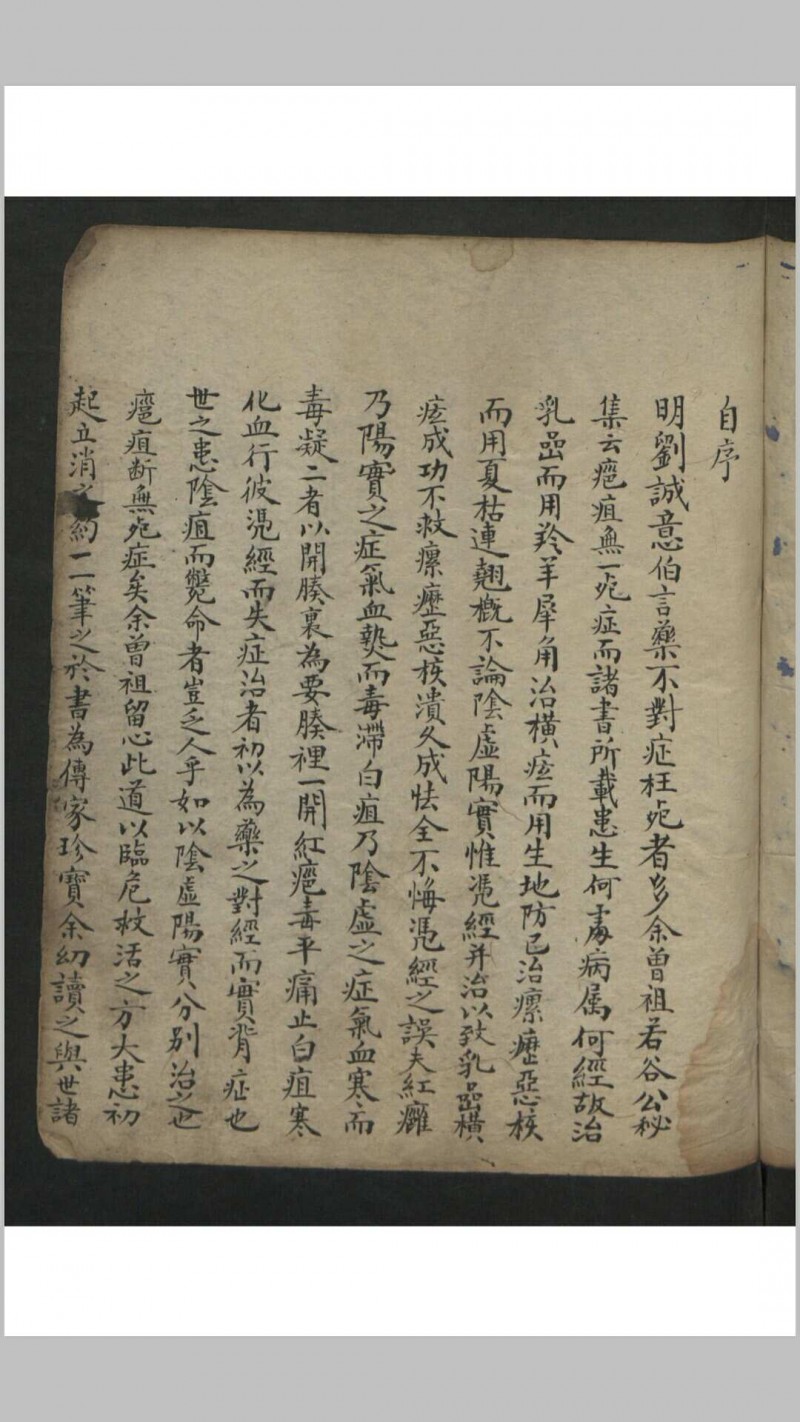 自序
明劉誠意伯言藥不對症枉死者多余曾祖若谷公秘
集云癰疽無一死症而諸書所載患生何處病属何經故治
乳嵒而用羚羊犀角治橫痃而用生地防己治瘰癧惡核
而用夏枯連翹概不論陰虛陽實惟凴經并治以致乳嵒橫
痃成功不救瘰癧惡核潰久成怯全不悔凴經之誤夫紅癰
乃陽實之症氣血熱而毒滯白疽乃陰虛之症氣血寒而
毒凝二者以開腠裏為要腠裡一開紅癰毒平痛止白疽寒
化血行彼凴經而失症治者初以為藥之對經而實背症也
世之患陰疽而斃命者豈乏人乎如以陰虛陽實分別治之
癰疽断無死症矣余曾祖留心此道以臨危救活之方大患初
起立消之約一一筆之於書為傳家珍寶余幼讀之與世諸